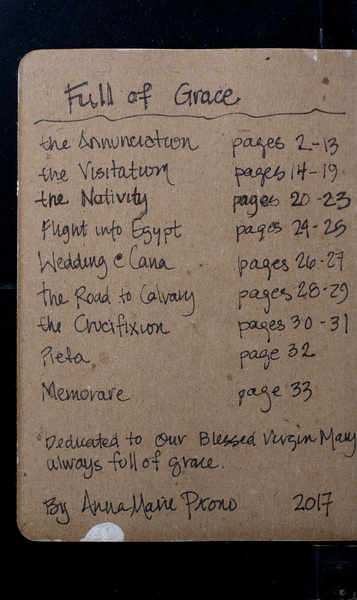 Full of Grace
the Annunciation pages 2-13
the Visitation pages 14-19
the Nativity pages 20-23
Flight into Egypt pages 24-25
Wedding @ Cana pages 26-27
the Road to Calvary pages 28-29
the Crucifixion pages 30-31
Pieta page 32
Memorare page 33
Dedicated to Our Blessed Virgin Mary
always full of grace.
By AnnaMarie Prono 2017